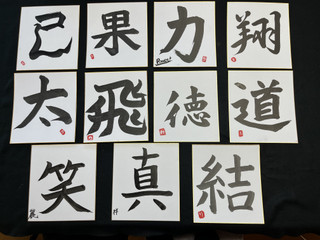 己 果 力 翔
太 飛 徳 道
笑 真 結